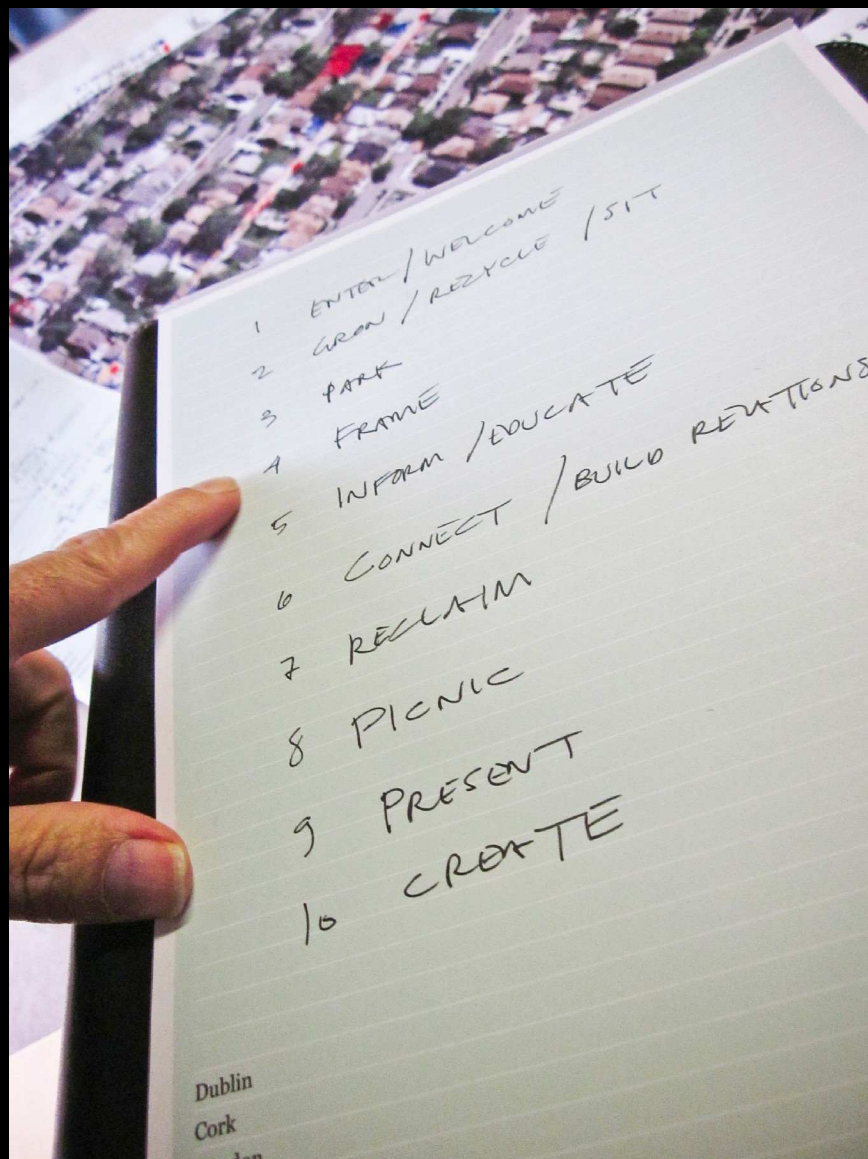 1 ENTER/WELCOME
2 GROW/RECYCLE/SIT
3 PARK
4 FRAME
5 INFORM/EDUCATE
6 CONNECT/BUILD RELATIONS
7 RECLAIM
8 PICNIC
9 PRESENT
10 CREATE
Dublin
Cork